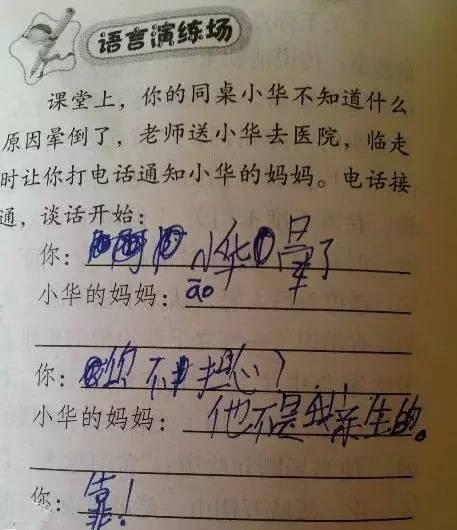 语言演练场
课堂上，你的同桌小华不知道什么
原因晕倒了，老师送小华去医院，临走
时让你打电话通知小华的妈妈。电话接
通，谈话开始：
你：阿 小华晕了
小华的妈妈：āo
你：你不担心？
小华的妈妈：他不是我亲生的。
你：靠！